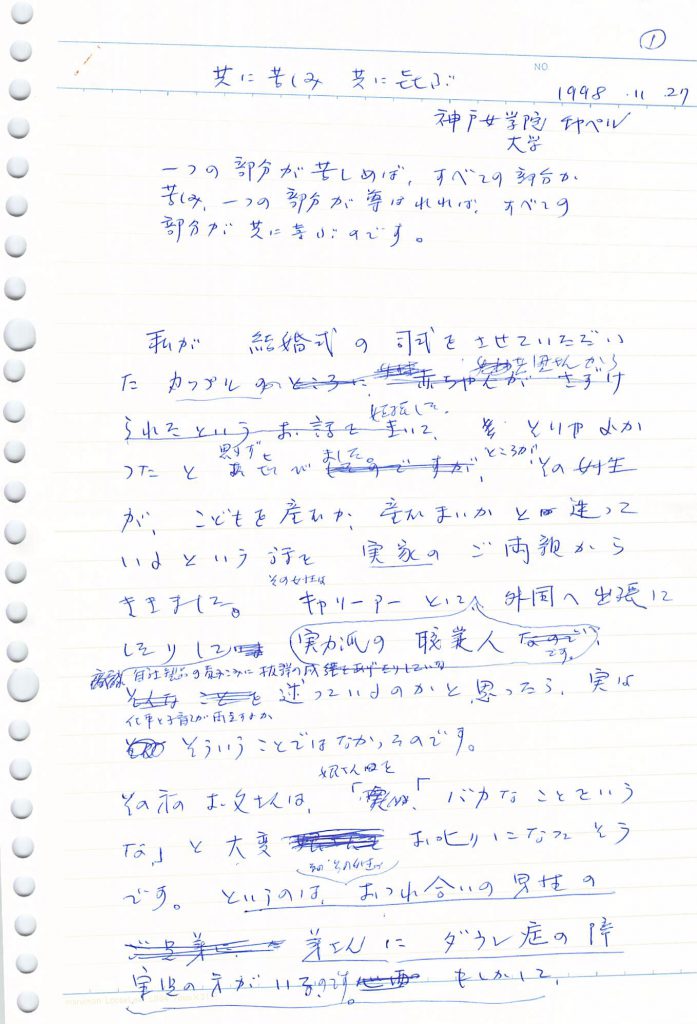 ①
NO
共に苦しみ 共に喜ぶ
1998.11.27
神戸女学院 チャペル
大学
一つの部分が苦しめば、すべての部分が
苦しみ、一つの部分が尊ばれれば、すべての
部分が共に喜ぶのです。
私が 結婚式の司式をさせていただい
お母さんから
た カップルの 赤ちゃんがさずけ
妊娠した
られたという お話を きいて、 そりゃよか
思わず ました。 ところが
ったと 喜び その女性
が、こどもを産むか、産むまいかと迷って
いるという話を 実家のご両親から
その女性は
ききました。 キャリアーとして 外国へ出張に
したりして 実力派の 職業人
です。
自社製品の売りこみに抜群の成績をあげたりしている
迷っているのかと思ったら、実は
仕事と子育てが両立するか
そういうことではなかったのです。
娘さんに
その方のお父さんは、「バカなことをいう
な」と大変 お叱りになったそう
その女性の
です。というのは、おつれ合いの男性の
弟さんに ダウン症の障
害児の方がいるのです。 もしかして、